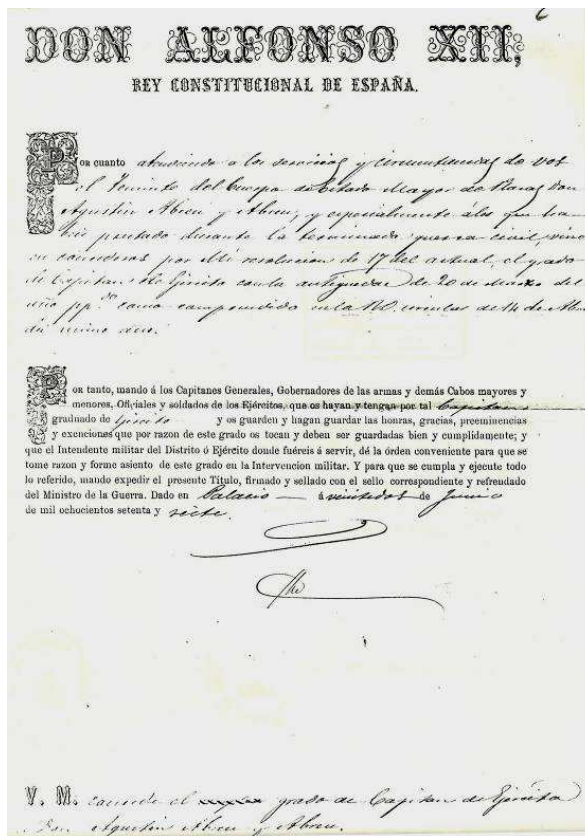 DON ALFONSO XII,
REY CONSTITUCIONAL DE ESPAÑA.
Por cuanto atendiendo a los servicios y circunstancias de vos
el Teniente del Cuerpo de Estado Mayor de Plazas Don
Agustin Abreu y Abreu, y especialmente á los que ha
beis prestado durante la terminada guerra civil, vine
en concederos por Mi resolucion de 17 del actual, el grado
de Capitan de Ejército con la antigüedad de 20 de Marzo del
año pp.do como comprendido en la circular de 14 de
Por tanto, mando á los Capitanes Generales, Gobernadores de las armas y demás Cabos mayores y
menores, Oficiales y soldados de los Ejércitos, que os hayan y tengan por tal Capitan
graduado de Ejército y os guarden y hagan guardar las honras, gracias, preeminencias
y exenciones que por razon de este grado os tocan y deben ser guardadas bien y cumplidamente; y
que el Intendente militar del Distrito ó Ejército donde fuéreis á servir, dé la órden conveniente para que se
tome razon y forme asiento de este grado en la Intervencion militar. Y para que se cumpla y ejecute todo
lo referido, mando expedir el presente Título, firmado y sellado con el sello correspondiente y refrendado
del Ministro de la Guerra. Dado en Palacio á veintidos de Junio
de mil ochocientos setenta y siete.
V. M. concede el grado de Capitan de Ejército
Don Agustin Abreu y Abreu.